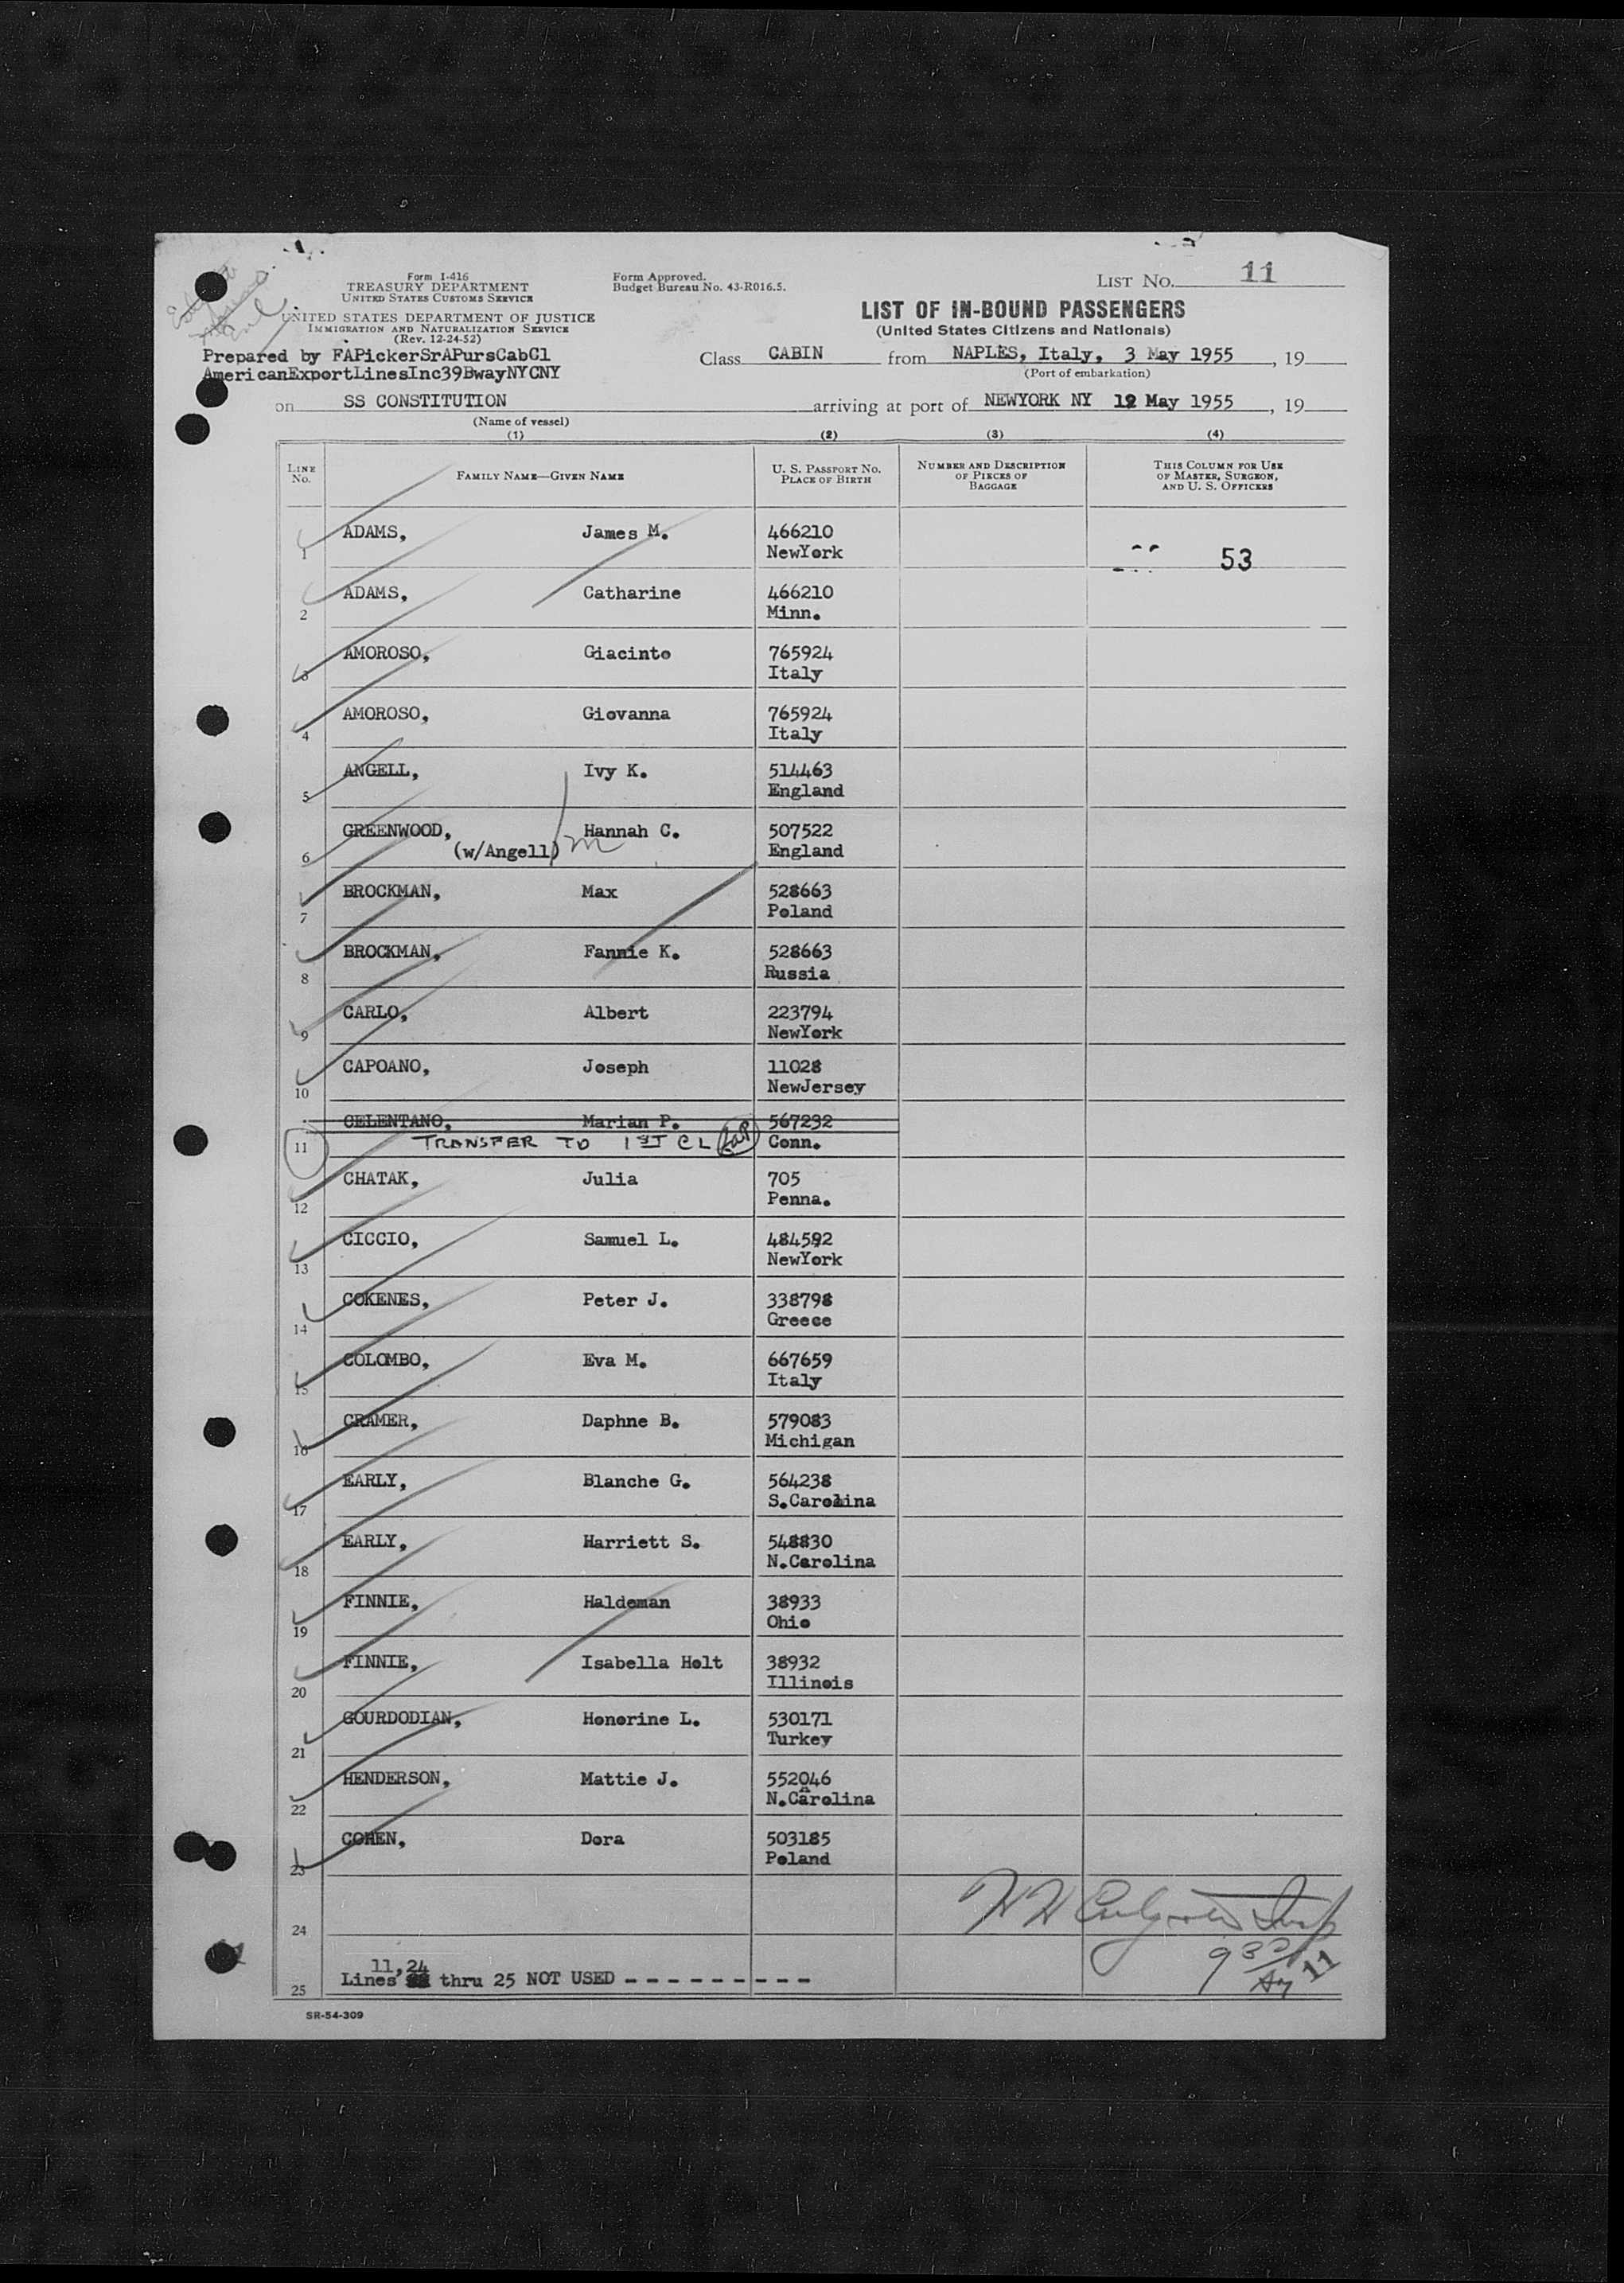 Form I-416
TREASURY DEPARTMENT
UNITED STATES CUSTOMS SERVICE
UNITED STATES DEPARTMENT OF JUSTICE
IMMIGRATION AND NATURALIZATION SERVICE
(Rev. 12-24-52)
Form Approved.
Budget Bureau No. 43-R016.5.
LIST NO. 11
LIST OF IN-BOUND PASSENGERS
(United States Citizens and Nationals)
Prepared by FAPickerSrAPursCabCl
AmericanExportLinesInc39BwayNYCNY
Class CABIN from NAPLES, Italy, 3 May 1955, 19
(Port of embarkation)
on SS CONSTITUTION arriving at port of NEWYORK NY 12 May 1955, 19
(Name of vessel)
(1) (2) (3) (4)
LINE No. FAMILY NAME—GIVEN NAME U. S. PASSPORT NO. PLACE OF BIRTH NUMBER AND DESCRIPTION OF PIECES OF BAGGAGE THIS COLUMN FOR USE OF MASTER, SURGEON, AND U. S. OFFICERS
1 ADAMS, James M. 466210
NewYork 53
2 ADAMS, Catharine 466210
Minn.
3 AMOROSO, Giacinto 765924
Italy
4 AMOROSO, Giovanna 765924
Italy
5 ANGELL, Ivy K. 514463
England
6 GREENWOOD, Hannah C. 507522
(w/Angell) m England
7 BROCKMAN, Max 528663
Poland
8 BROCKMAN, Fannie K. 528663
Russia
9 CARLO, Albert 223794
NewYork
10 CAPOANO, Joseph 11028
NewJersey
11 CELENTANO, Marian P. 567232
TRANSFER TO 1ST CL Conn.
12 CHATAK, Julia 705
Penna.
13 CICCIO, Samuel L. 484592
NewYork
14 COKENES, Peter J. 338798
Greece
15 COLOMBO, Eva M. 667659
Italy
16 CRAMER, Daphne B. 579083
Michigan
17 EARLY, Blanche G. 564238
S.Carolina
18 EARLY, Harriett S. 548830
N.Carolina
19 FINNIE, Haldeman 38933
Ohio
20 FINNIE, Isabella Holt 38932
Illinois
21 GOURDODIAN, Honorine L. 530171
Turkey
22 HENDERSON, Mattie J. 552046
N.Carolina
23 COHEN, Dora 503185
Poland
24
11,24
25 Lines thru 25 NOT USED - - - - - - - - -
930
11
SR-54-309